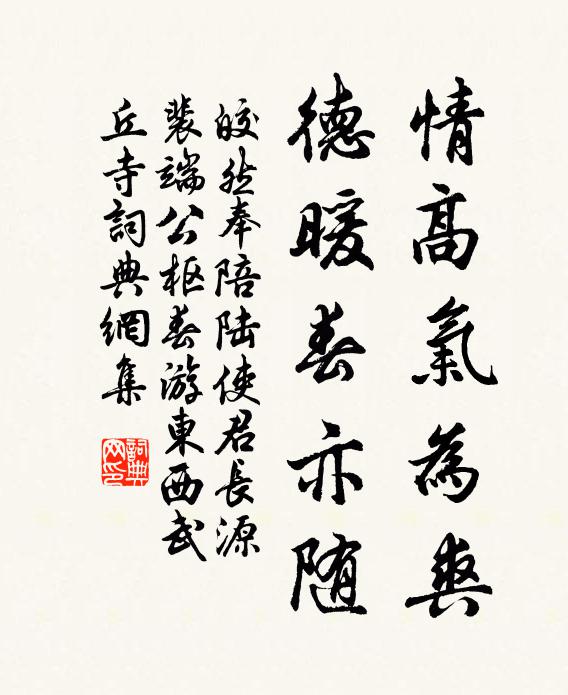 情高氣為爽
德暖春亦随
皎然奉陪陆使君長源
裴端公枢春游東西武
丘寺詞典網集
詞典網印